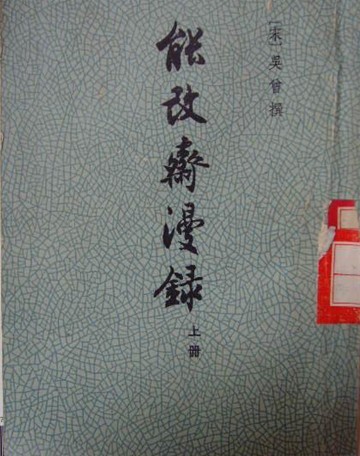 [宋]吳曾撰
能改齋漫録
上册